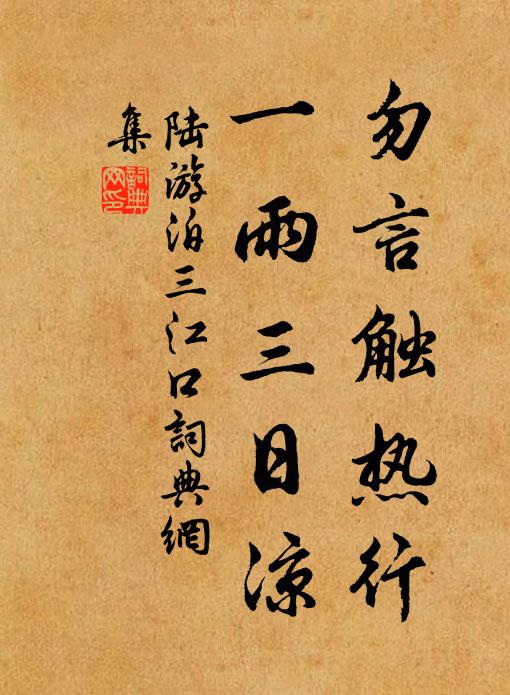 勿言触热行
一雨三日凉
陆游泊三江口詞典網
集
詞典網印